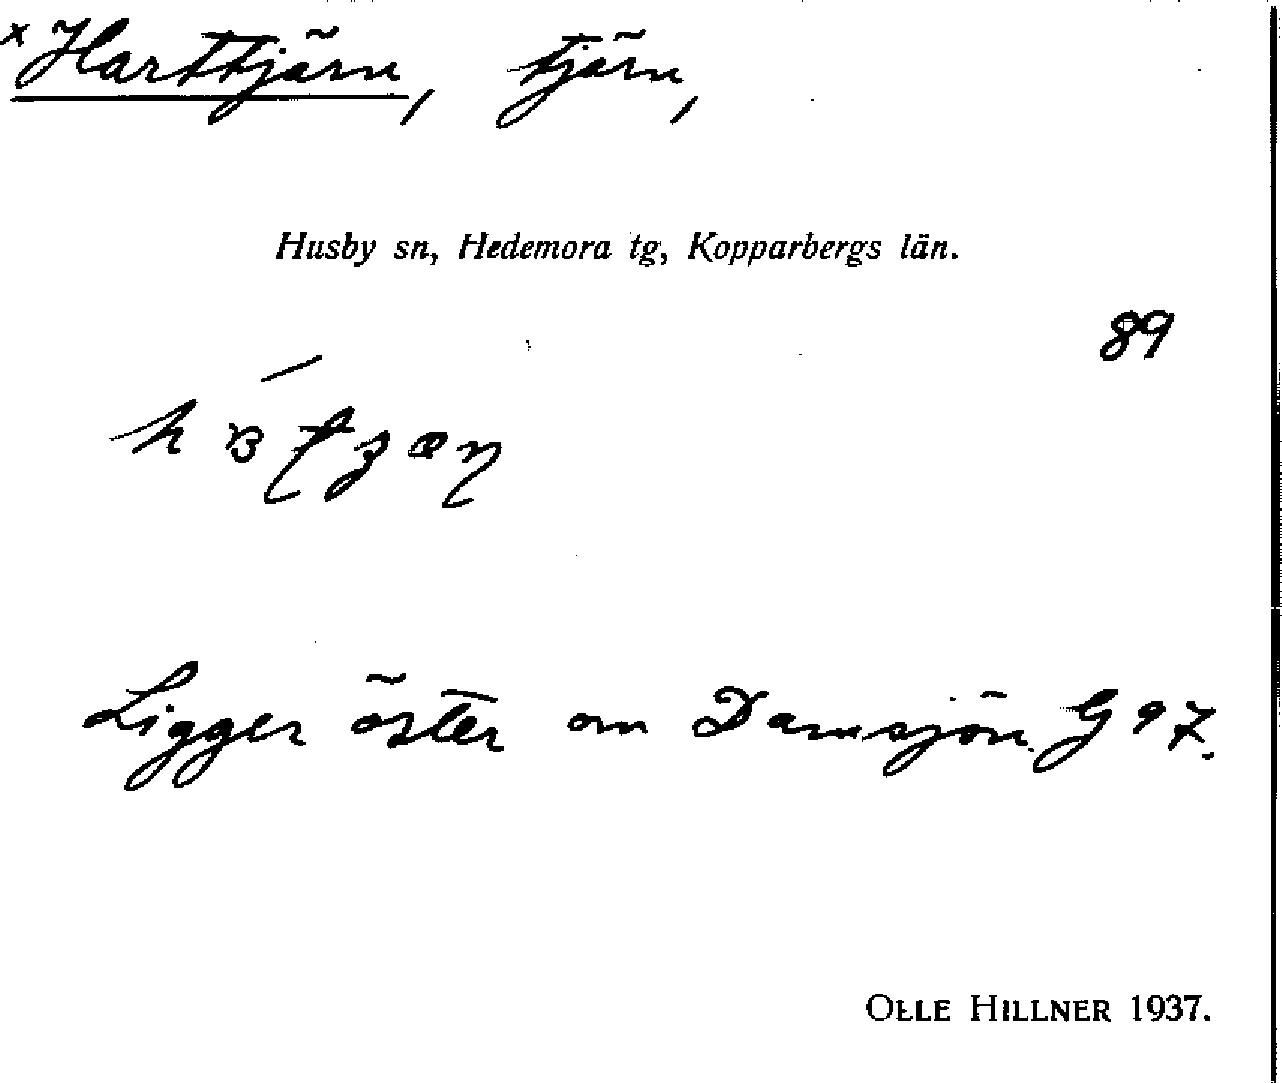 x Harttjärn, tjärn,
Husby sn, Hedemora tg, Kopparbergs län.
89
Ligger öster om Damsjön G 97.
OLLE HILLNER 1937.